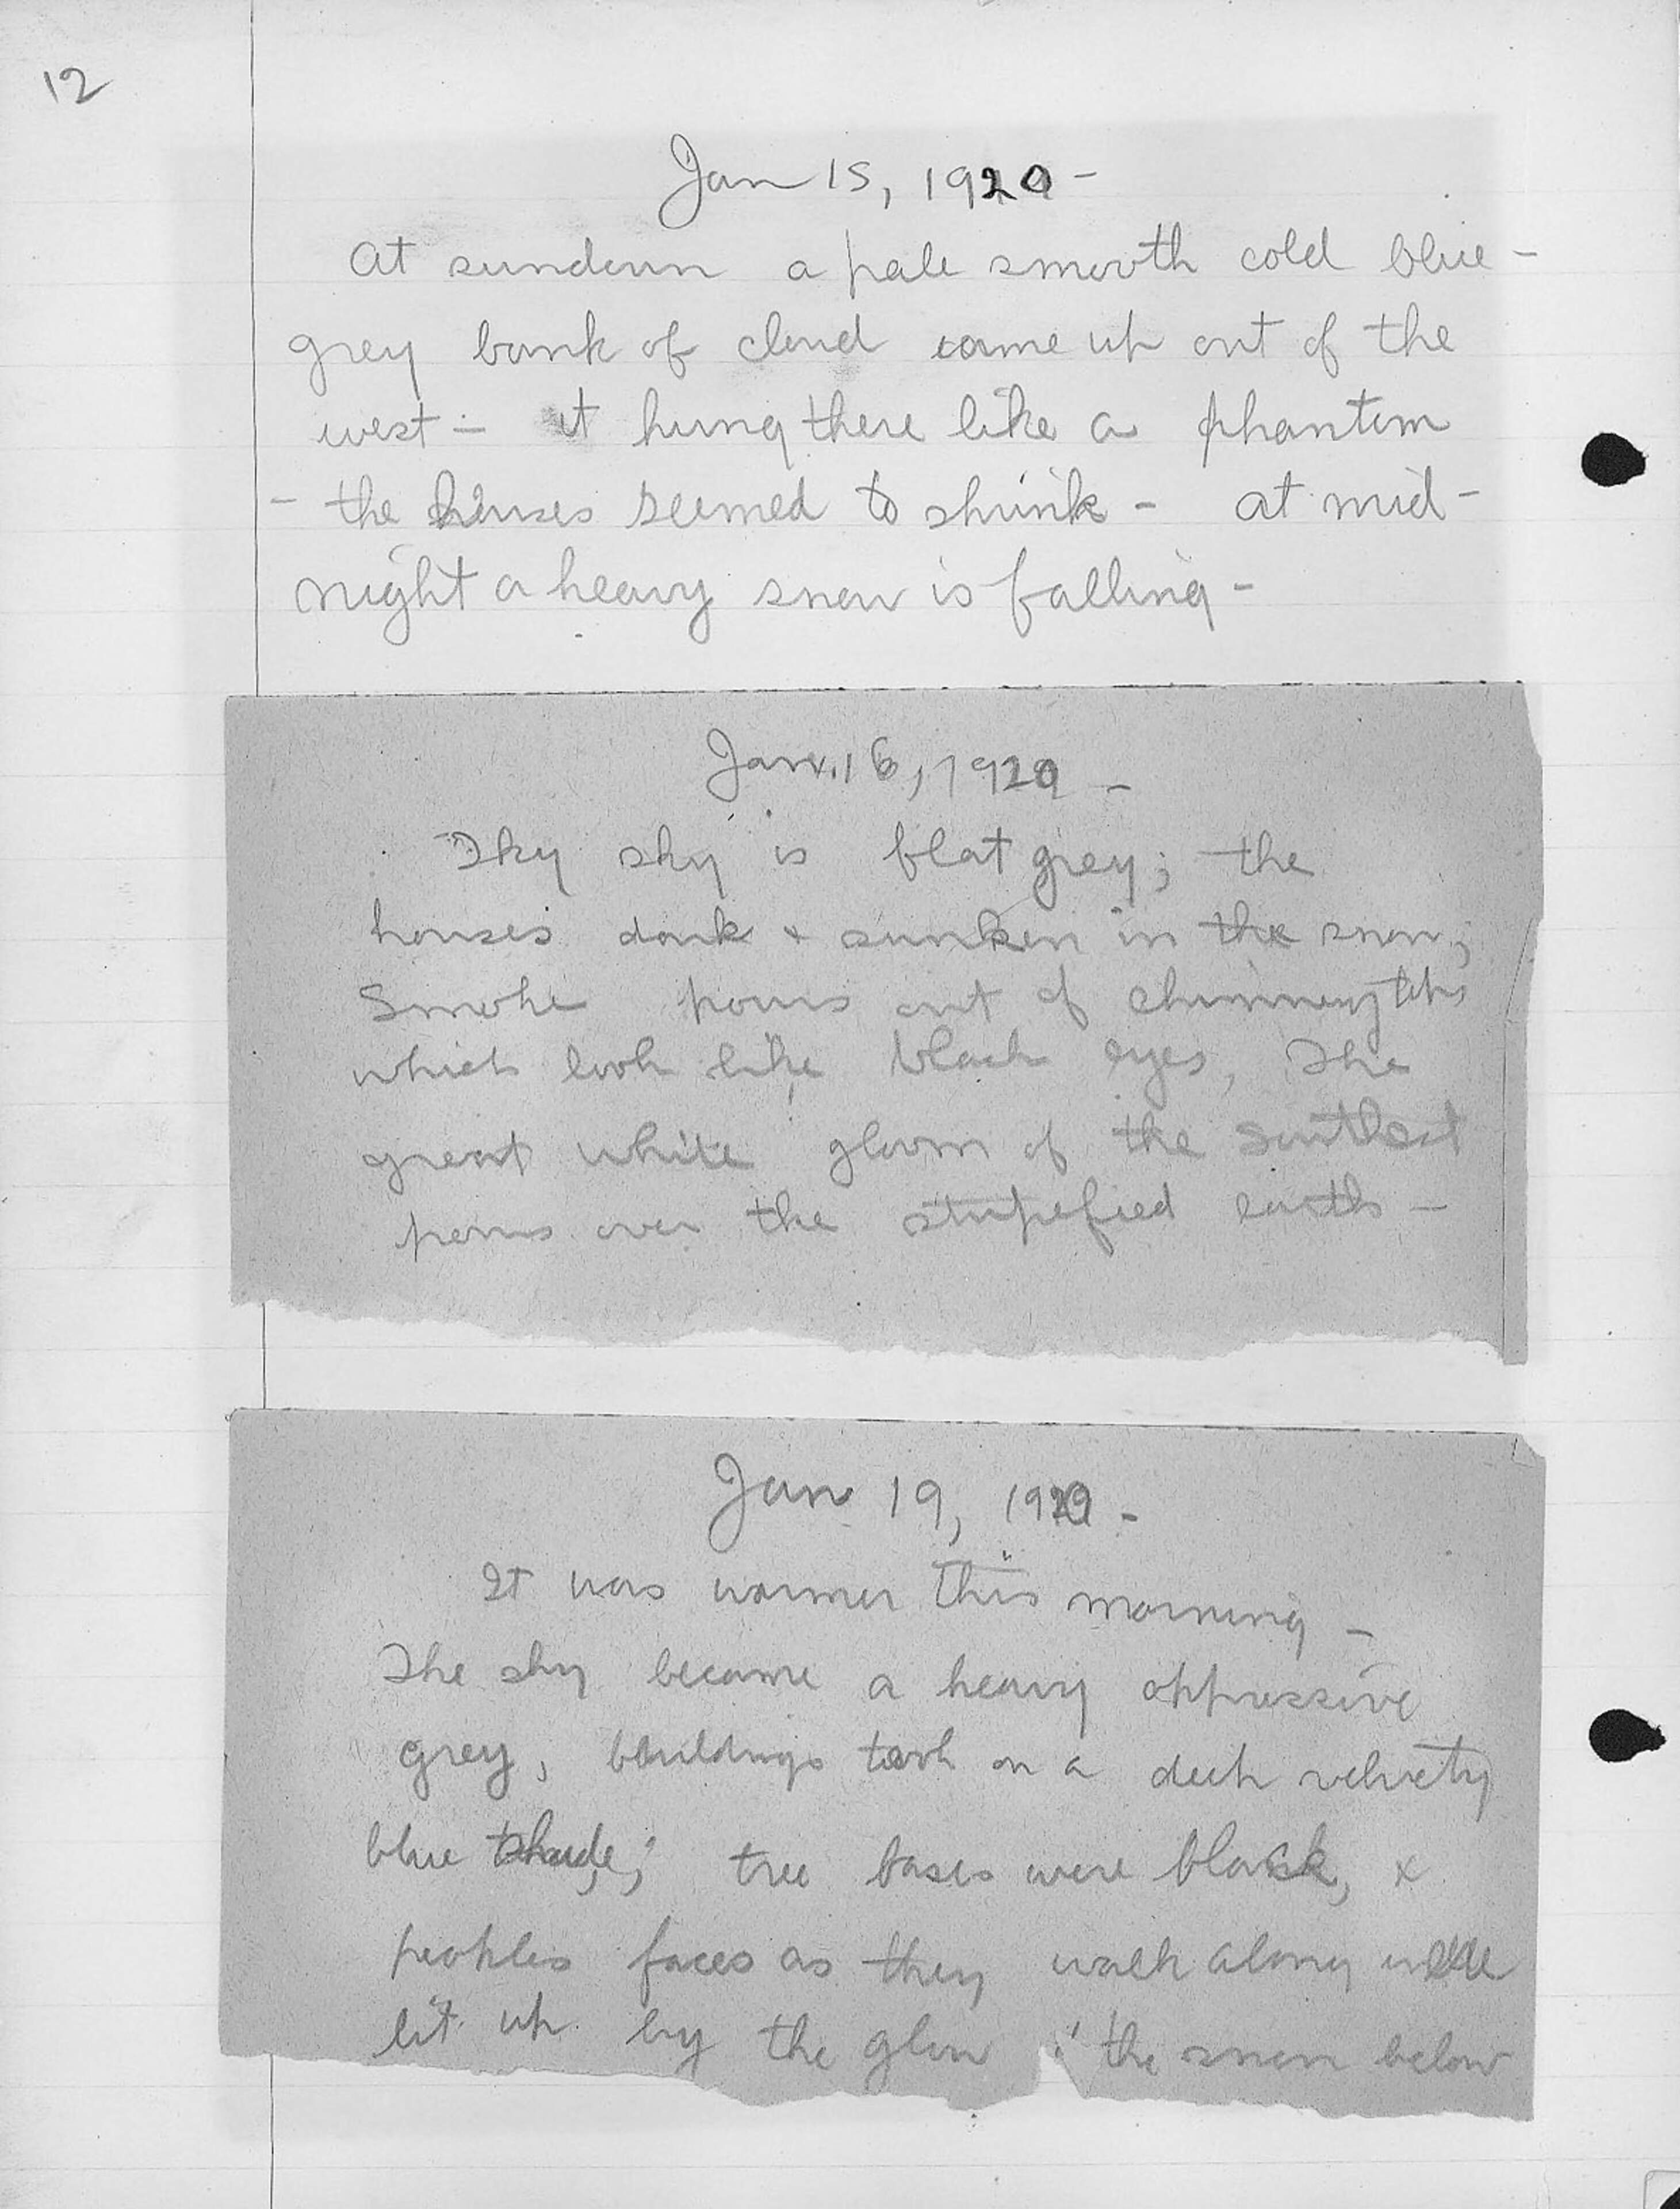 12
Jan 15, 1920 -
At sundown a pale smooth cold blue -
grey bank of cloud came up out of the
west - it hung there like a phantom
- the houses seemed to shrink - at mid -
night a heavy snow is falling -
Jan. 16, 1920 -
Sky sky is flat grey; the
houses dark + sunken in the snow;
Smoke pours out of chimney tops
which look like black eyes, The
great white gloom of the
pours over the stupefied earth -
Jan 19, 1920 -
It was warmer this morning -
The sky became a heavy oppressive
grey, buildings took on a deep velvety
blue shade; tree bases were black, +
peoples faces as they walk along were
lit up by the glow the snow below